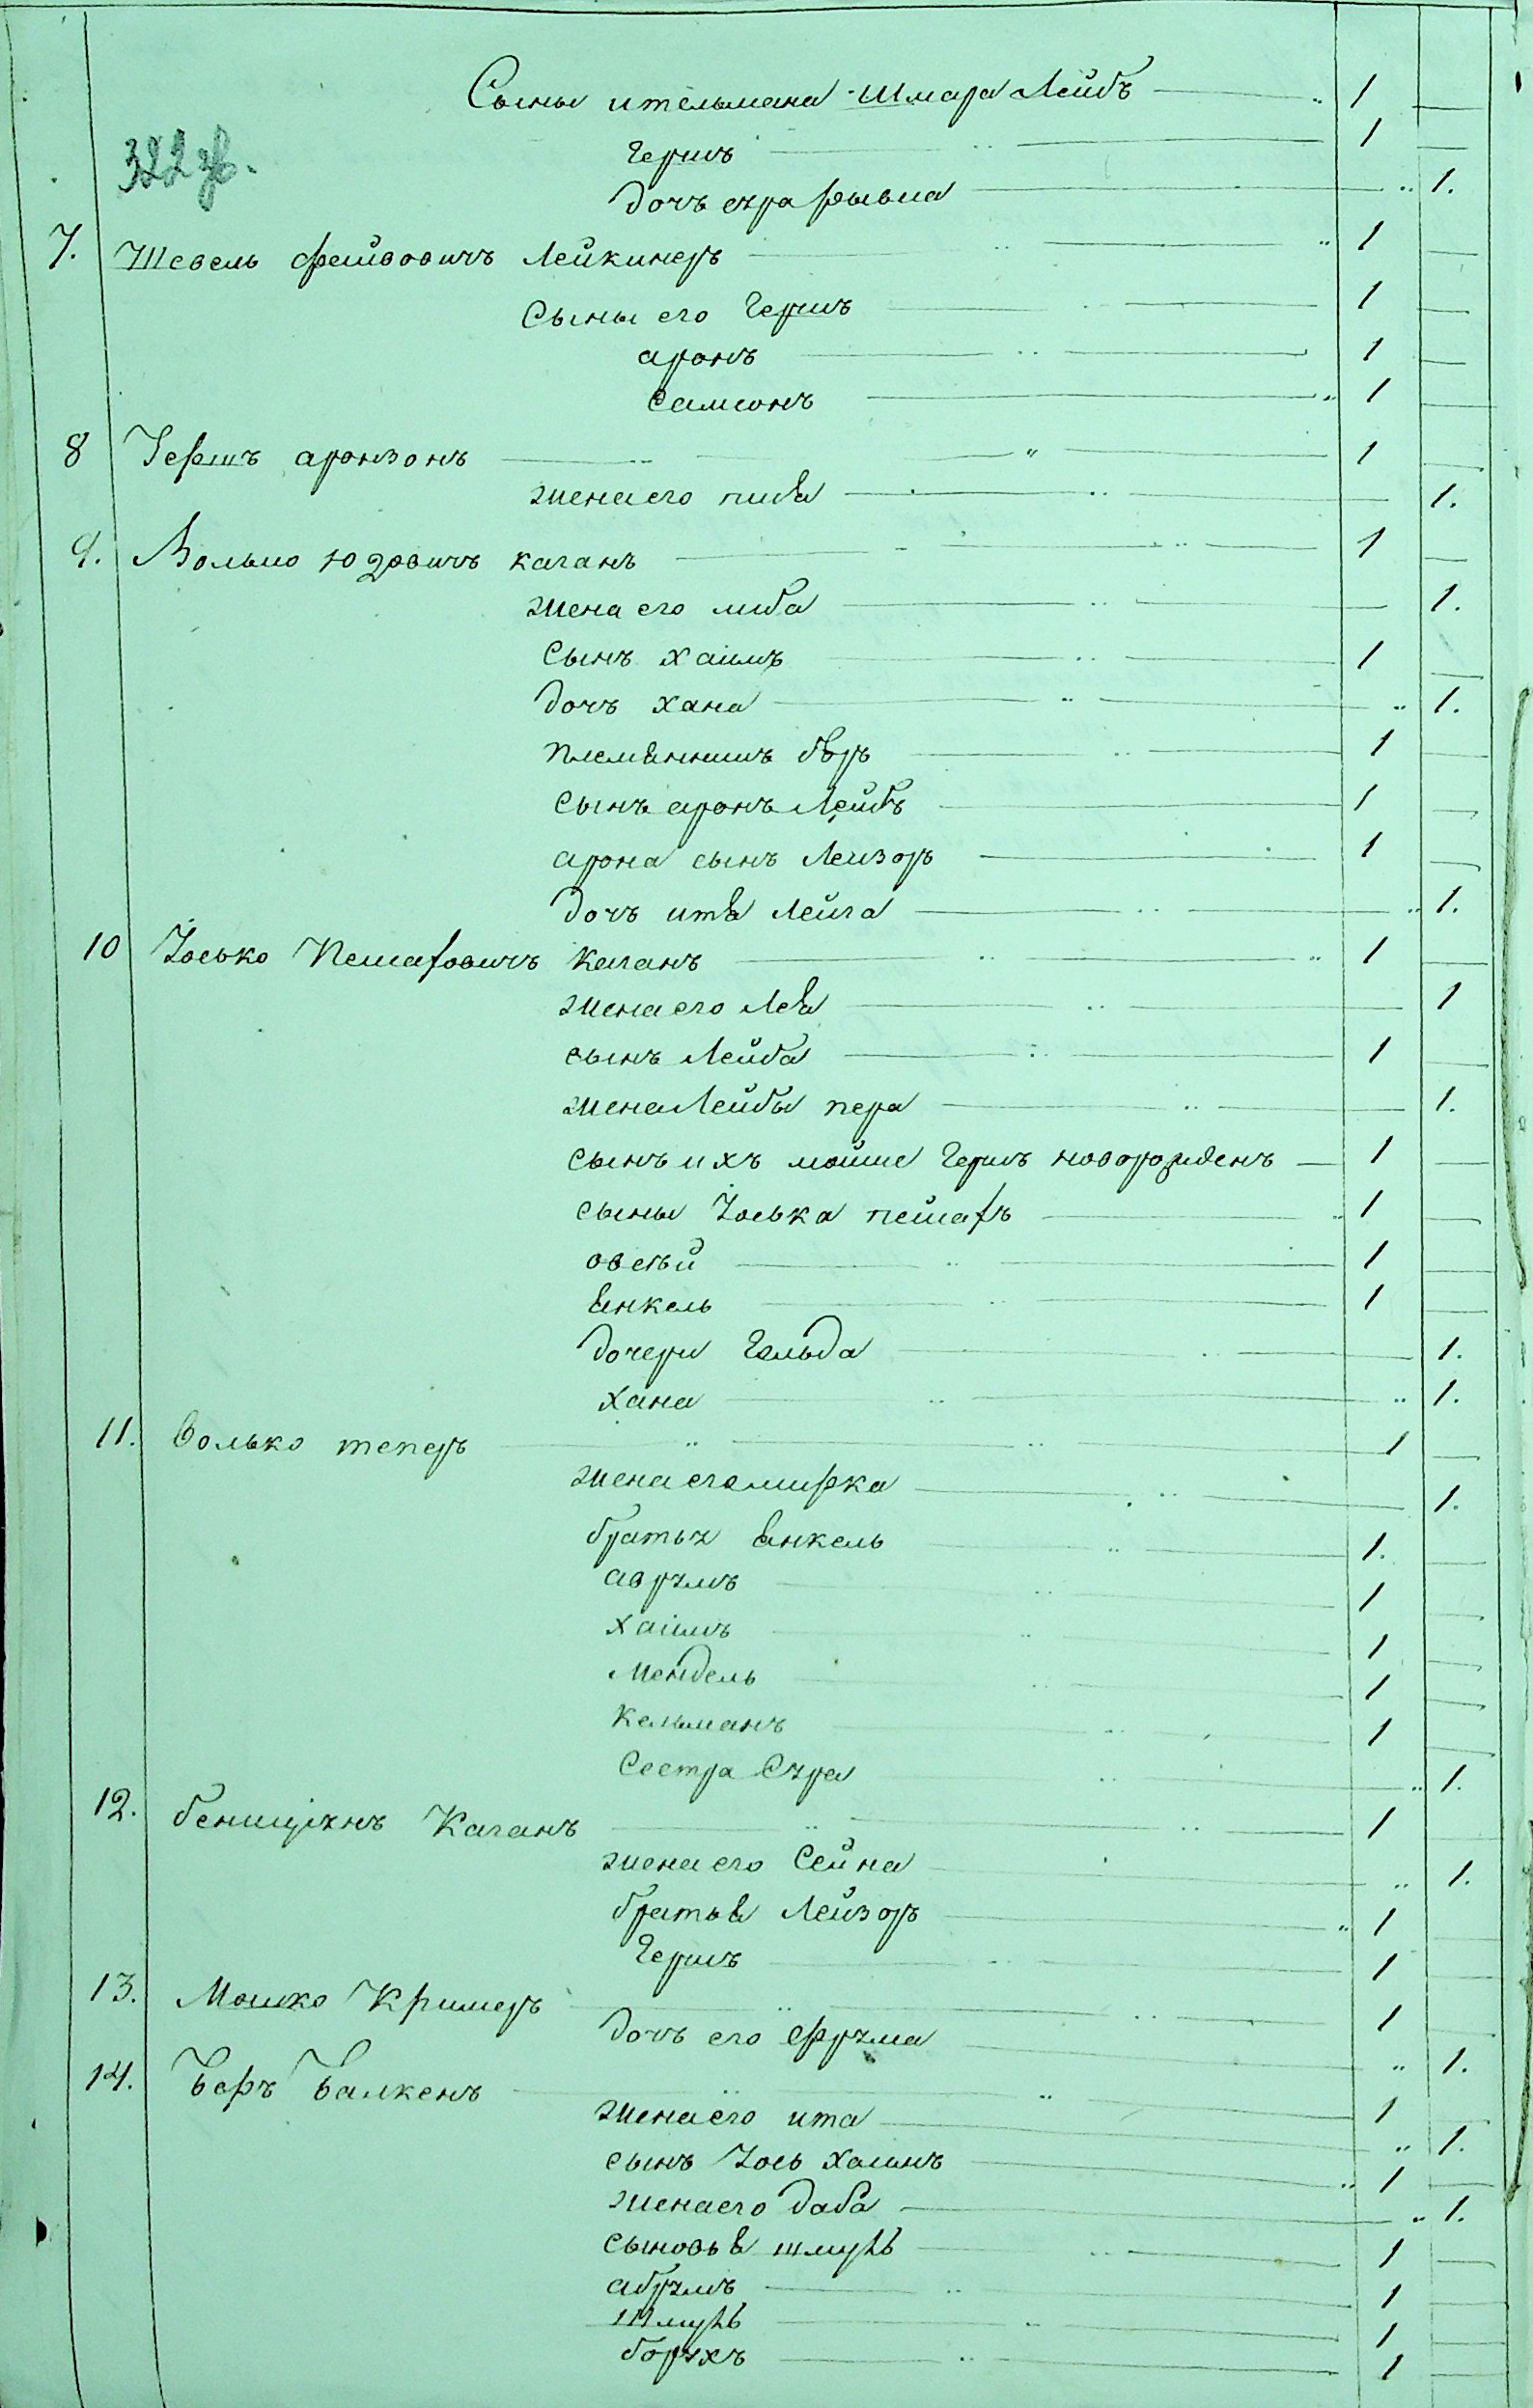 Сыны ительмана Шмара Лейбъ 1
322 зв.
Гершъ 1
дочь сура рывна 1.
7. Шевель фейвовичъ Лейкинеръ 1
Сыны его Гершъ 1
аронъ 1
Самсонъ 1
8 Гершъ аронзонъ 1
жена его 1.
9. Вольно Юдовичъ каганъ 1
жена его либа 1.
Сынъ хаимъ 1
дочь хана 1.
племянникъ бѣръ 1
Сынъ аронъ Лейбъ 1
арона сынъ Лейзоръ 1
дочь итя Лейга 1.
10 Иосько Песаховичъ Каганъ 1
жена его Лея 1
сынъ Лейба 1
жена Лейбы пера 1.
сынъ ихъ мойше Гершъ новорожденъ 1
сыны Иоська песахъ 1
овсѣй 1
янкель 1
дочери Гольда 1.
хана 1.
11. Волько теперъ 1
жена его мирка 1.
братья янкель 1.
аврумъ 1
хаимъ 1
Мендель 1
Кельманъ 1
Сестра Сура 1.
12. Каганъ 1
жена его Сейна 1.
братья Лейзоръ 1
Гершъ 1
13. Мошко Кримеръ 1
дочь его фрума 1.
14. Беръ Балкенъ 1
жена его ита 1.
сынъ Иось хаимъ 1
жена его доба 1.
сыновья шмуль 1
абрумъ 1
Шмуль 1
борухъ 1